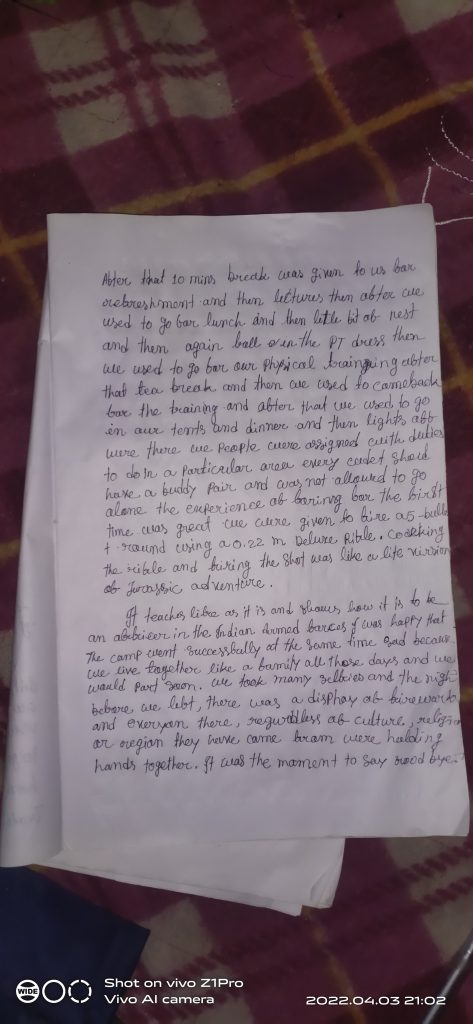 After that 10 mins break was given to us for
refereshment and then lectures then after we
used to go for lunch and then little bit of rest
and then again fall over in the PT dress then
we used to go for our physical training after
that tea break and then we used to come back
for the training and after that we used to go
in our tents and dinner and then lights off
were there we people were assigned with duties
to do in a particular area every cadet should
have a buddy pair and was not allowed to go
alone the experience of firing for the first
time was great we were given to fire a 5-bulle
t round using a 0.22 m Deluxe Rifle. Cocking
the rifle and firing the shot was like a life
of Jurassic adventure.
It teaches life as it is and shows how it is to be
an officer in the Indian Armed forces I was happy that
The camp went successfully at the same time sad because
we live together like a family all those days and we
would part soon. we took many selfies and the night
before we left, there was a display of fireworks
and everyon there, regurdless of culture, religion
or region they have came from were holding
hands together. It was the moment to say good bye.
WIDE
Shot on vivo Z1Pro
Vivo AI camera
2022.04.03 21:02